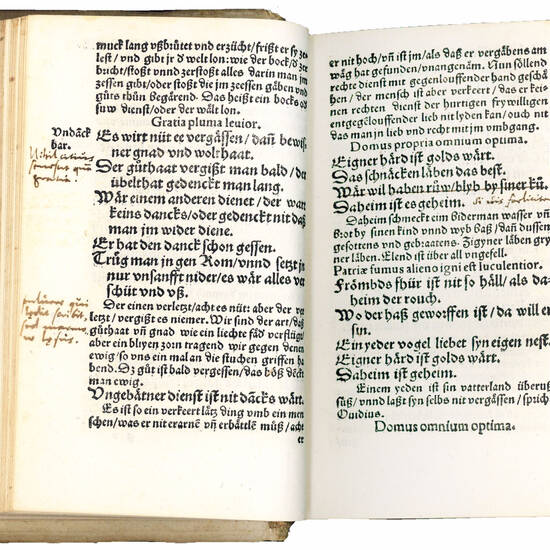 muck lang vßbrütet vnd erzücht/frißt er sy ze
lest/vnd gibt jr d welt lon: wie der bock/d ze
bucht/stoßt vnnd zerstoßt alles darin man jm
fressen gibt/oder die im zeessen gäben vnd
gůts thůn begärend. Das heißt ein bocks od
suw dienst/oder der wält lon.
Gratia pluma leuior.
Vndäck
bar.
Es wirt nüt ee vergässen/dañ bewiß
ner gnad vnd wolthaat.
Der gůthaat vergißt man bald/der
übelthat gedenckt man lang.
Wär einem anderen dienet/der wart
keins dancks/oder gedenckt nit daß
man jm wider diene.
Er hat den danck schon gessen.
Trůg man jn gen Rom/vnnd setzt jn
nur vnsanfft nider/es wär alles ver
schüt vnd vß.
Der einen verletzt/acht es nüt: aber der ver
letzt/vergißt es niemer. Wir sind der art/daß
gůthaat vñ gnad wie ein liecht fäd verflügt/
aber ein blyen zorn tragend wir gegen denen
ewig/so vns ein mal an die stuchen griffen ha
bend. Dz gůt ist bald vergessen/das böß denckt
man ewig.
Vngebätner dienst ist nit dácks wärt.
Es ist so ein verkeert lätz ding vmb ein men
schen/was er nit erarnè vñ erbättlè můß/acht
er
er nit hoch/vñ ist jm/als daß er vergäbens am
wäg hat gefunden/vnangenäm. Nun söllend
rechte dienst mit gegenlouffender hand geschä
hen/der mensch ist aber verkeert/das er kei
nen rechten dienst der hurtigen frywilligen
entgegëlouffender lieb nit lyden kan/ouch nit
das man in lieb vnd recht mit jm vmbgang.
Domus propria omnium optima.
Eigner härd ist golds wärt.
Das schnäcken läben das best.
Wär wil haben růw/blyb by siner ků.
Daheim ist es geheim.
Daheim schmeckt eim Biderman wasser vñ
Brot by sinen kind vnnd wyb baß/dañ dussen
gesottens vnd gebraatens. Zigyner läben gry
ner läben. Elend ist über all vngefell.
Patriæ fumus alieno igni est luculentior.
Frömbds fhür ist nit so häll/als da
heim der rouch.
Wo der haß geworffen ist/da wil er
sin.
Ein yeder vogel liebet syn eigen nest.
Eigner härd ist golds wärt.
Daheim ist geheim.
Einem yeden ist sin vatterland überuß
sůß/vnnd laßt syn selbs nit vergässen/sprich
Ouidius.
Domus omnium optima.